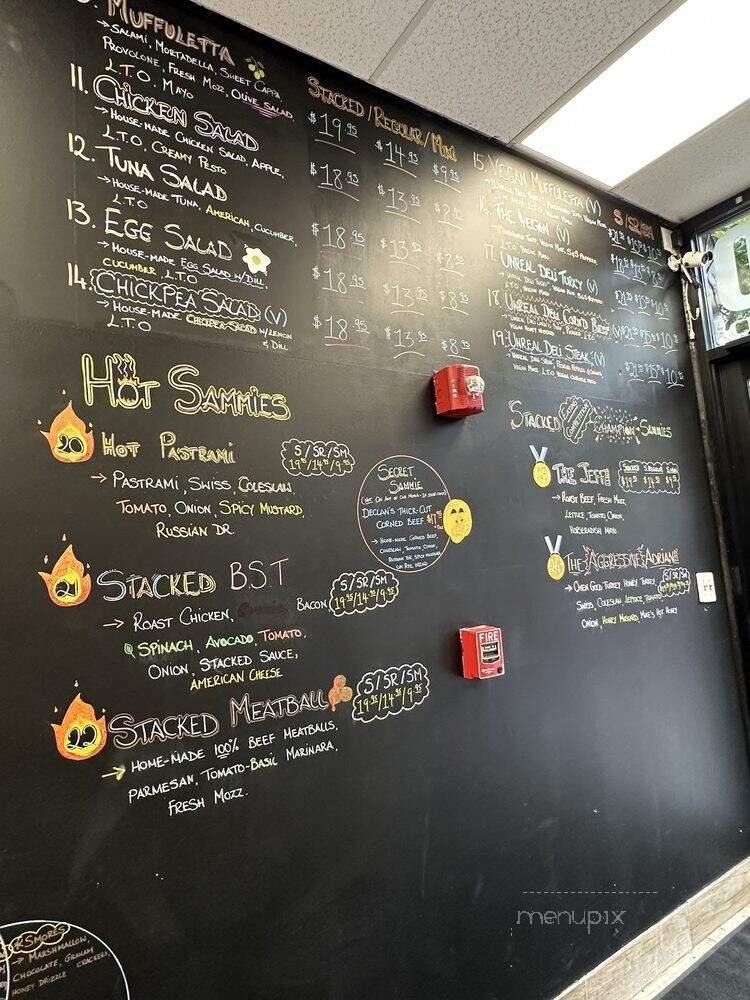 MUFFULETTA
→ SALAMI, MORTADELLA, SWEET CAPPA,
PROVOLONE, FRESH MOZZ, OLIVE SALAD,
L.T.O, MAYO
11. CHICKEN SALAD
→ HOUSE-MADE CHICKEN SALAD, APPLE,
L.T.O, CREAMY PESTO
12. TUNA SALAD
→ HOUSE-MADE TUNA, AMERICAN, CUCUMBER,
L.T.O
13. EGG SALAD
→ HOUSE-MADE EGG SALAD W/DILL
CUCUMBER L.T.O
14. CHICKPEA SALAD (V)
→ HOUSE-MADE CHICKPEA SALAD W/LEMON
& DILL
L.T.O
STACKED / REGULAR / MINI
$19.95 $14.95 $9.95
$18.95 $13.95 $8.95
$18.95 $13.95 $8.95
$18.95 $13.95 $8.95
$18.95 $13.95 $8.95
15. VEGAN MUFFULETTA (V)
16. THE VEGAN (V)
L.T.O VEGAN MAYO
17. UNREAL DELI TURKEY (V)
L.T.O, VEGAN MAYO
18. UNREAL DELI CORNED BEEF (V)
19. UNREAL DELI STEAK (V)
VEGAN MAYO, L.T.O, VEGAN CHIPOTLE MAYO
HOT SAMMIES
20 HOT PASTRAMI
S/SR/SM
19.95/14.95/9.95
→ PASTRAMI, SWISS COLESLAW,
TOMATO, ONION, SPICY MUSTARD,
RUSSIAN DR.
21 STACKED B.S.T
S/SR/SM
19.95/14.95/9.95
→ ROAST CHICKEN, BACON
SPINACH, AVOCADO, TOMATO,
ONION, STACKED SAUCE,
AMERICAN CHEESE
22 STACKED MEATBALL
S/SR/SM
19.95/14.95/9.95
→ HOME-MADE 100% BEEF MEATBALLS,
PARMESAN, TOMATO-BASIL MARINARA,
FRESH MOZZ.
SECRET
SAMMIE
DECLAN'S THICK-CUT
CORNED BEEF
→ HOME-MADE CORNED BEEF,
COLESLAW, TOMATO, ONION,
RUSSIAN DR, SPICY MUSTARD
ON RYE BREAD
STACKED EATING COMPETITION CHAMPION SAMMIES
THE JEFF!
$19.95 $14.95 $9.95
→ ROAST BEEF, FRESH MOZZ,
LETTUCE, TOMATO, ONION,
HORSERADISH MAYO
THE AGGRESSIVE ADRIAN!
S/SR/SM
→ OVEN GOLD TURKEY, HONEY TURKEY,
SWISS, COLESLAW, LETTUCE, TOMATO
ONION, HONEY MUSTARD, MIKE'S HOT HONEY
FIRE
S'MORES
→ MARSHMALLOW,
CHOCOLATE, GRAHAM
HONEY DRIZZLE CRACKERS,
menupix